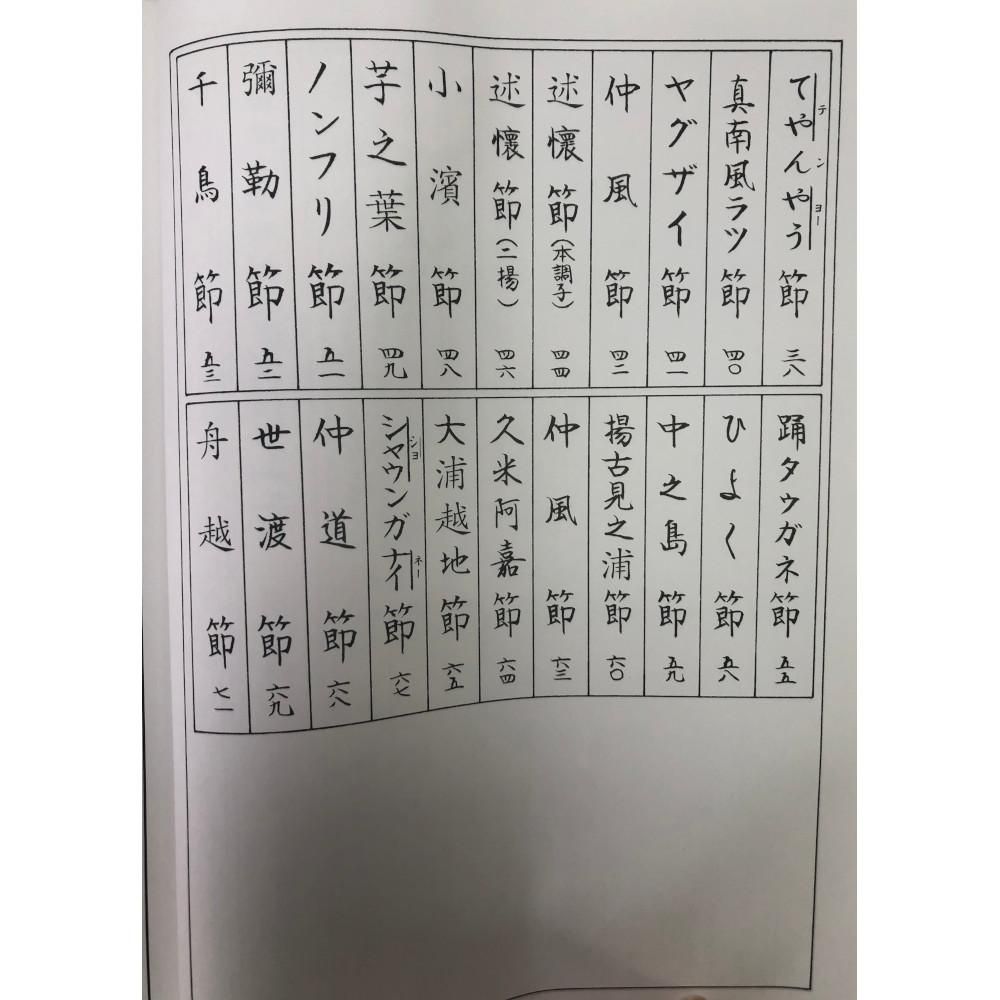 てやんやう節 三八
テンヨー
真南風ラツ節 四〇
ヤグザイ節 四一
仲風節 四二
述懷節(本調子) 四四
述懷節(二揚) 四六
小濱節 四八
芋之葉節 四九
ノンフリ節 五一
彌勒節 五二
千鳥節 五三
踊タウガネ節 五五
ひよく節 五八
中之島節 五九
揚古見之浦節 六〇
仲風節 六三
久米阿嘉節 六四
大浦越地節 六五
シャウンガナイ節 六七
ショ ネー
仲道節 六八
世渡節 六九
舟越節 七一